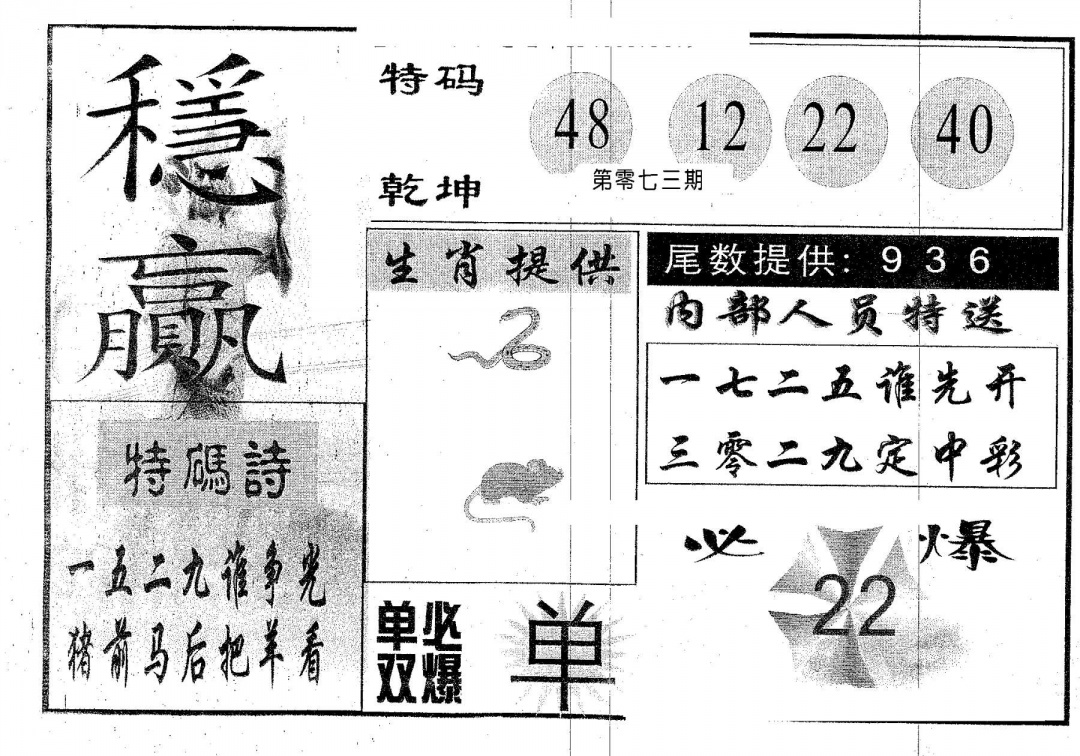 穩贏
特码
乾坤
48 12 22 40
第零七三期
特碼詩
一五二九谁争光
猪前马后把羊看
生肖提供
单双必爆
单
尾数提供: 9 3 6
内部人员特送
一七二五谁先开
三零二九定中彩
必爆
22